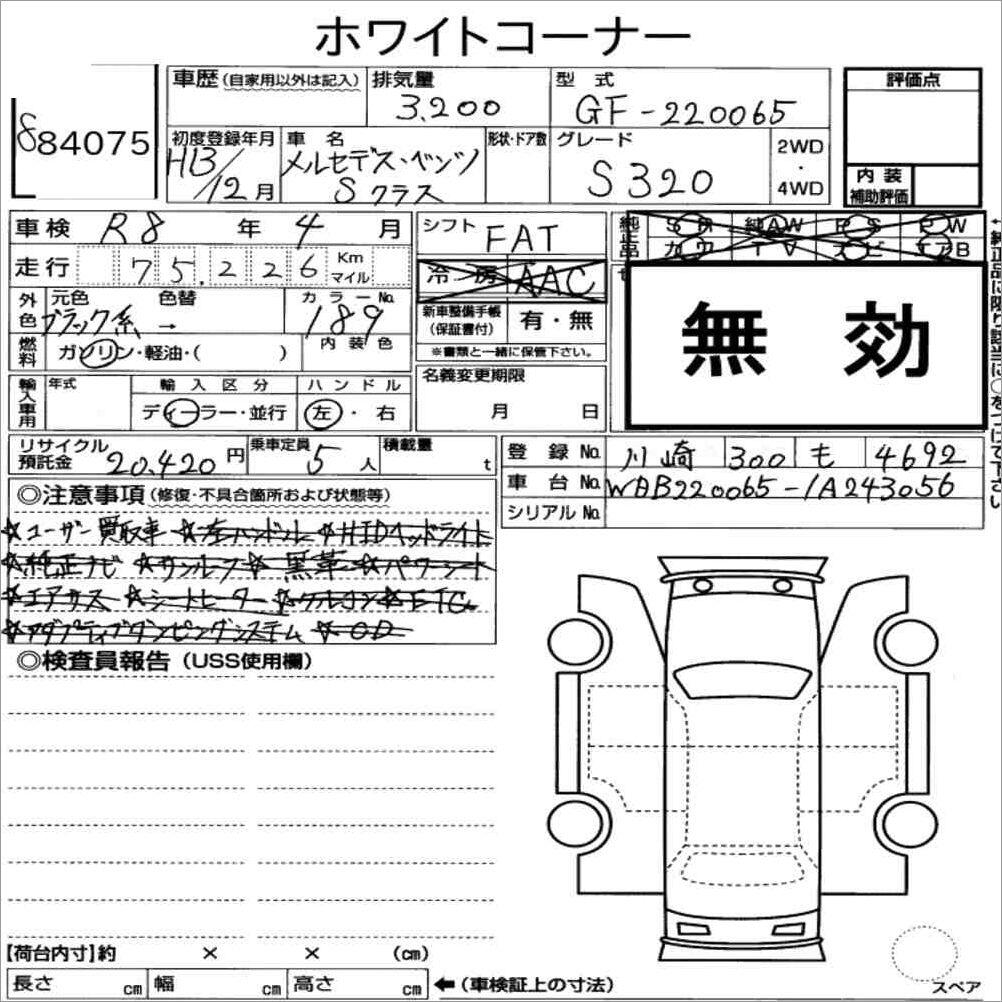 ホワイトコーナー
884075
車歴(自家用以外は記入) 排気量 3,200 型式 GF-220065 評価点
初度登録年月 H13/12月 車名 メルセデス・ベンツ Sクラス 形状・ドア数 グレード S320 2WD・4WD
内装補助評価
車検 R8年4月 シフト FAT 純正品 SR 純AW PS PW
カワ TV ナビ エアB
←純正品に限り該当に○をつけて下さい
走行 75,226 Km マイル 冷房 AAC
外色 元色 ブラック系 → 色替 カラーNo. 189 内装色
新車整備手帳(保証書付) 有・無
※書類と一緒に保管下さい。
無効
燃料 ガソリン・軽油・( )
輸入車用 年式 輸入区分 ディーラー・並行 ハンドル 左・右
名義変更期限 月 日
リサイクル預託金 20,420円 乗車定員 5人 積載量 t
登録No. 川崎 300 も 4692
車台No. WDB220065-1A243056
シリアルNo.
◎注意事項(修復・不具合箇所および状態等)
☆ユーザー買取車 ☆左ハンドル ☆HIDヘッドライト
☆純正ナビ ☆サンルーフ ☆黒革 ☆パワーシート
☆エアサス ☆シートヒーター ☆クルコン ☆ETC
☆アダプティブダンピングシステム ☆OD
◎検査員報告(USS使用欄)
【荷台内寸】約 × × (cm)
長さ cm 幅 cm 高さ cm ←(車検証上の寸法)
スペア